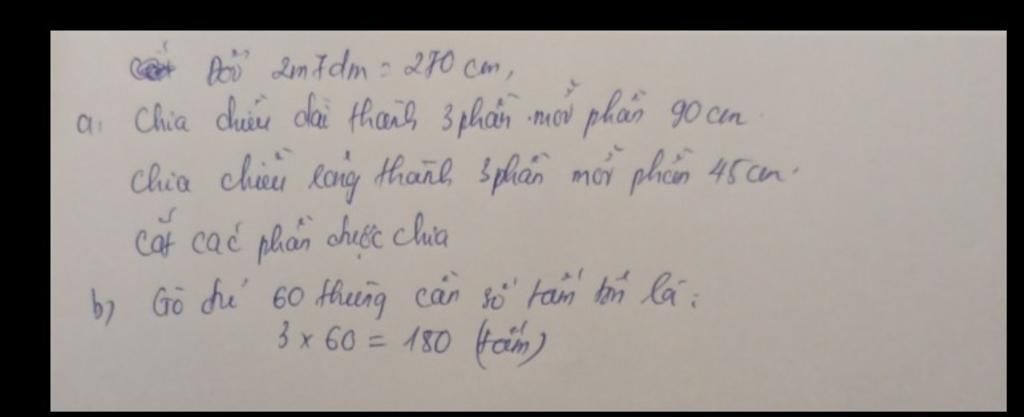 Đổi 2m7dm = 270 cm,
a. Chia chiều dài thành 3 phần mỗi phần 90 cm.
Chia chiều rộng thành 3 phần mỗi phần 45 cm.
Cắt các phần được chia
b) Gò đủ 60 thùng cần số tấm tôn là:
3 x 60 = 180 (tấm)